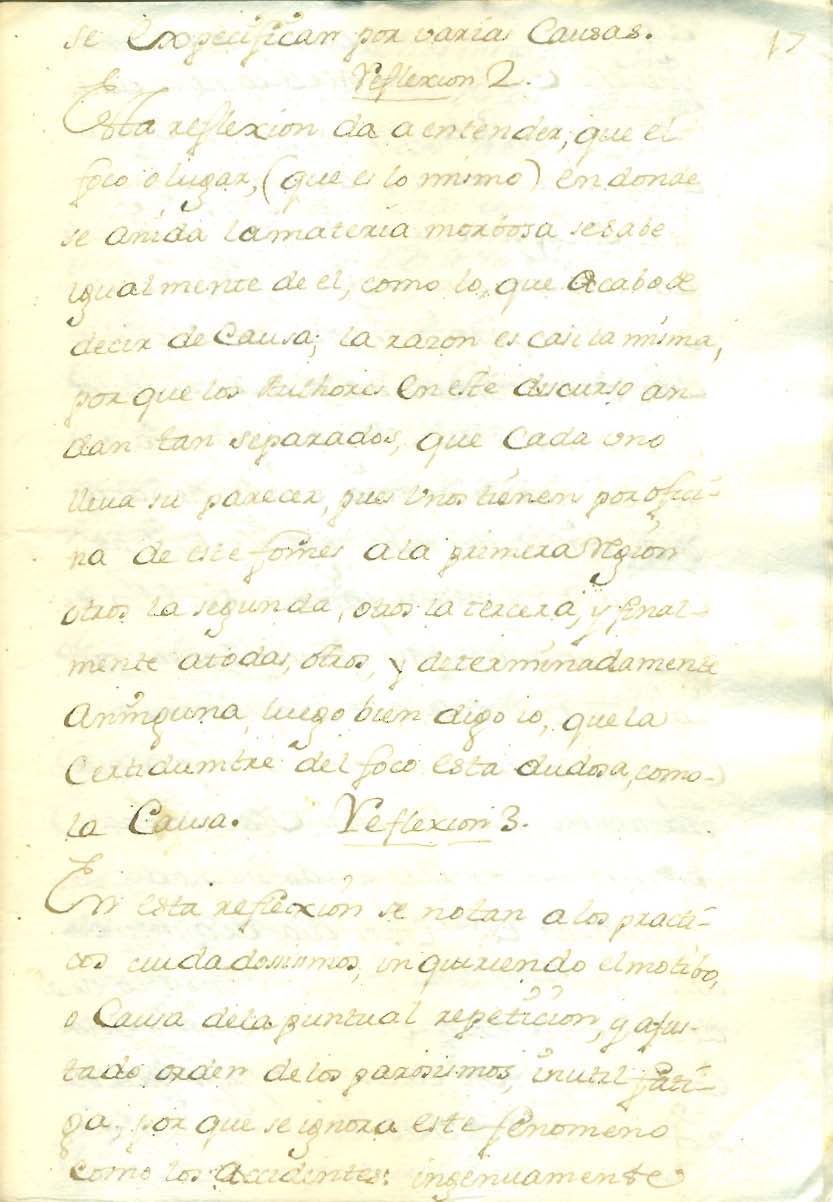 17
se Expecifican por varias Causas.
Reflexion 2.
Esta reflexion da a entender, que el
foco o lugar, (que es lo mismo) en donde
se anida la materia morbosa se sabe
igualmente de el, como lo, que Acabo de
decir de Causa; la razon es casi la misma,
por que los Authores en este discurso an-
dan tan separados, que Cada uno
lleua su parecer, pues unos tienen por ofici-
na de este fomes a la primera Region
otros la segunda, otros la tercera, y final-
mente a todas, otros, y determinadamente
a ninguna, luego bien digo io, que la
Certidumbre del foco esta dudosa, como-
la Causa. Reflexion 3.
En esta reflexion se notan a los practi-
cos cuidadosissimos, inquiriendo el motibo,
o Causa de la puntual repeticion, y ajus-
tado orden de los parosismos, inutil fati-
ga, por que se ignora este fenomeno
Como los Accidentes: ingenuamente